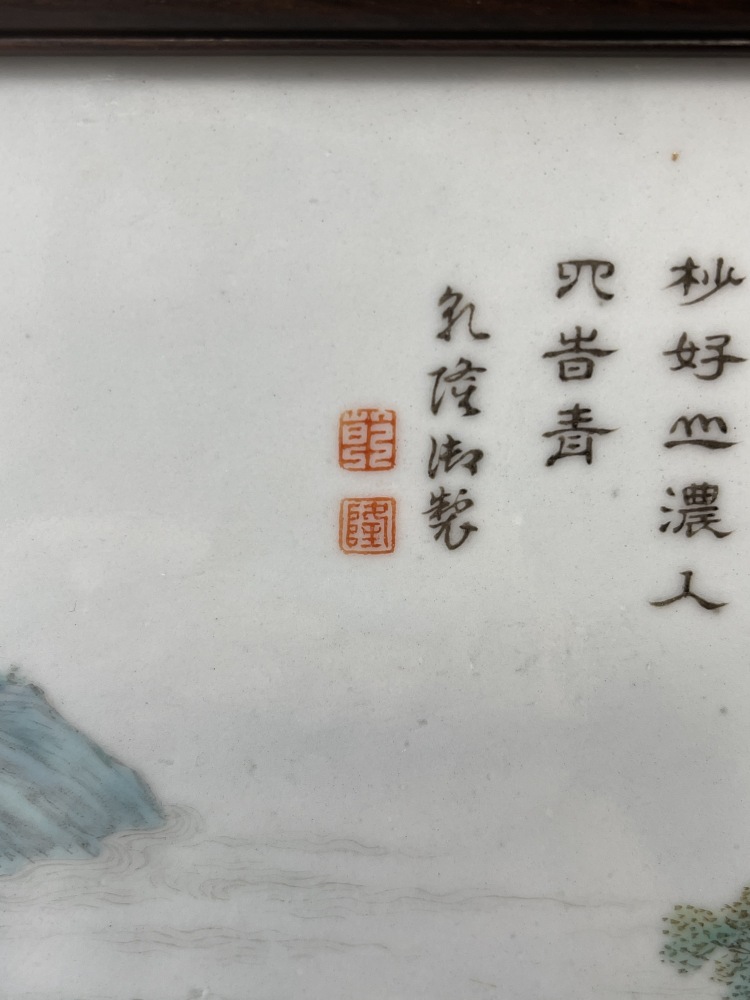 杪好山濃人
四旹青
乾隆御製
乾
隆